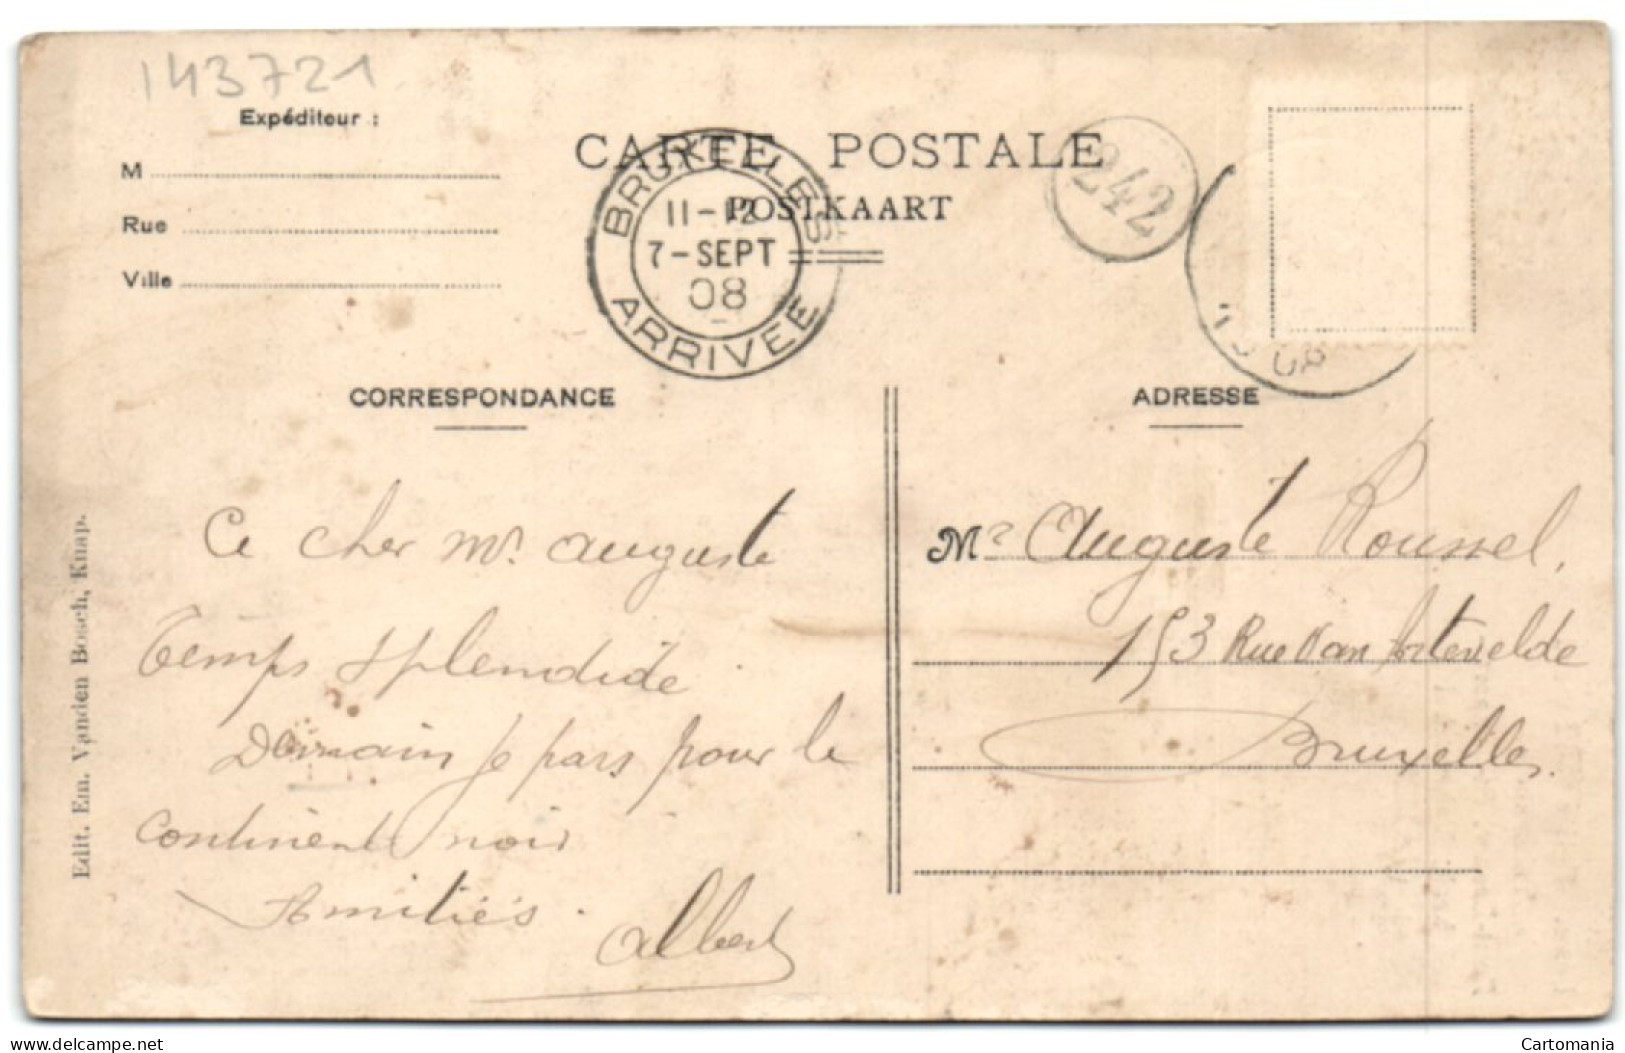 143721
Expéditeur :
M
Rue
Ville
CARTE POSTALE
POSTKAART
BRUXELLES
11-12
7-SEPT
08
ARRIVEE
242
08
CORRESPONDANCE
ADRESSE
Ce cher Mr. Auguste
Temps splendide
Demain je pars pour le
continent noir
Amitiés.
Albert
Mr Auguste Roussel,
153 Rue Van Artevelde
Bruxelles.
Edit. Em. Vanden Bosch, Knap.
delcampe.net
Cartomania